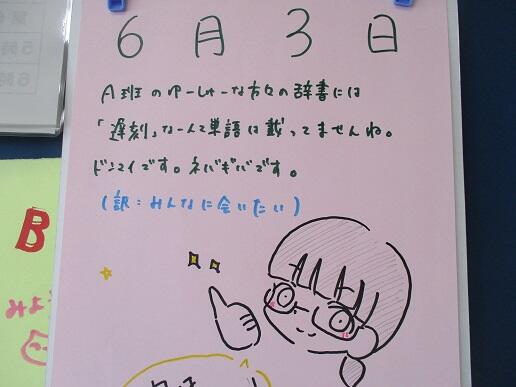 6月3日
A班のゆーしゅーな方々の辞書には
「遅刻」なーんて単語は載ってませんね。
ドンマイです。ネバギバです。
(訳:みんなに会いたい)
B
みよ